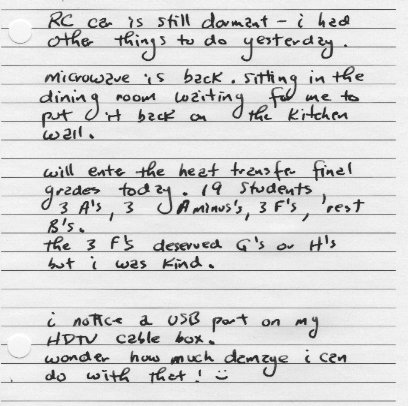 RC car is still dormant - i had
other things to do yesterday.
microwave is back. sitting in the
dining room waiting for me to
put it back on the kitchen
wall.
will enter the heat transfer final
grades today. 19 students,
3 A's, 3 A minus's, 3 F's, rest
B's.
the 3 F's deserved G's or H's
but i was kind.
i notice a USB port on my
HDTV cable box.
wonder how much damage i can
do with that! :)